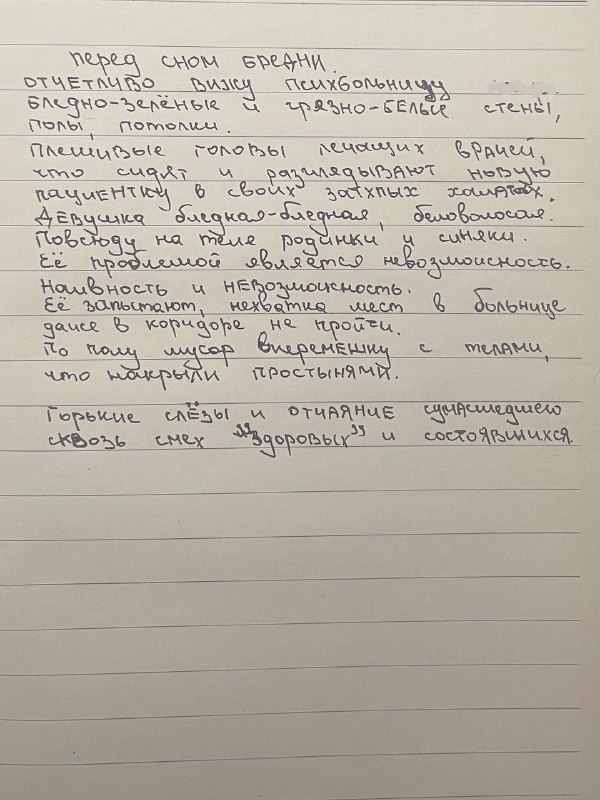 перед сном бредни.
отчетливо вижу психбольницу
бледно-зелёные и грязно-белые стены,
полы, потолки.
Плешивые головы лечащих врачей,
что сидят и разглядывают новую
пациентку в своих затхлых халатах.
Девушка бледная-бледная, беловолосая.
Повсюду на теле родинки и синяки.
Её проблемой является невозможность.
Наивность и невозможность.
Её запытают, нехватка мест в больнице
даже в коридоре не пройти.
По полу мусор вперемешку с телами,
что накрыли простынями.
Горькие слёзы и отчаяние сумасшедшего
сквозь смех "здоровых" и состоявшихся.